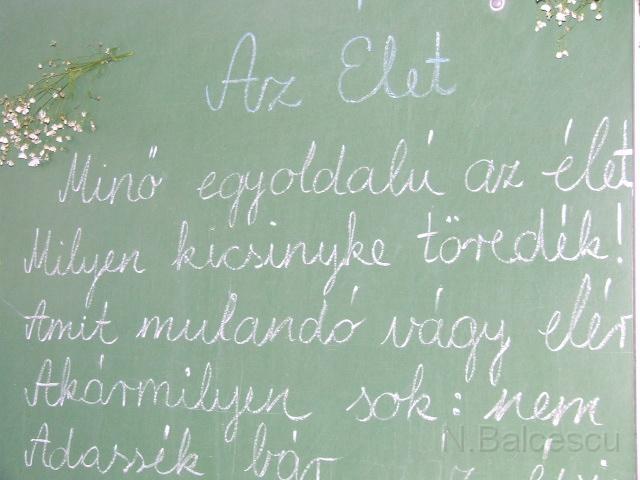 Az Élet
Minő egyoldalú az élet
Milyen kicsinyke töredék!
Amit mulandó vágy elér
Akármilyen sok: nem
Adassék bár
N.Balcescu